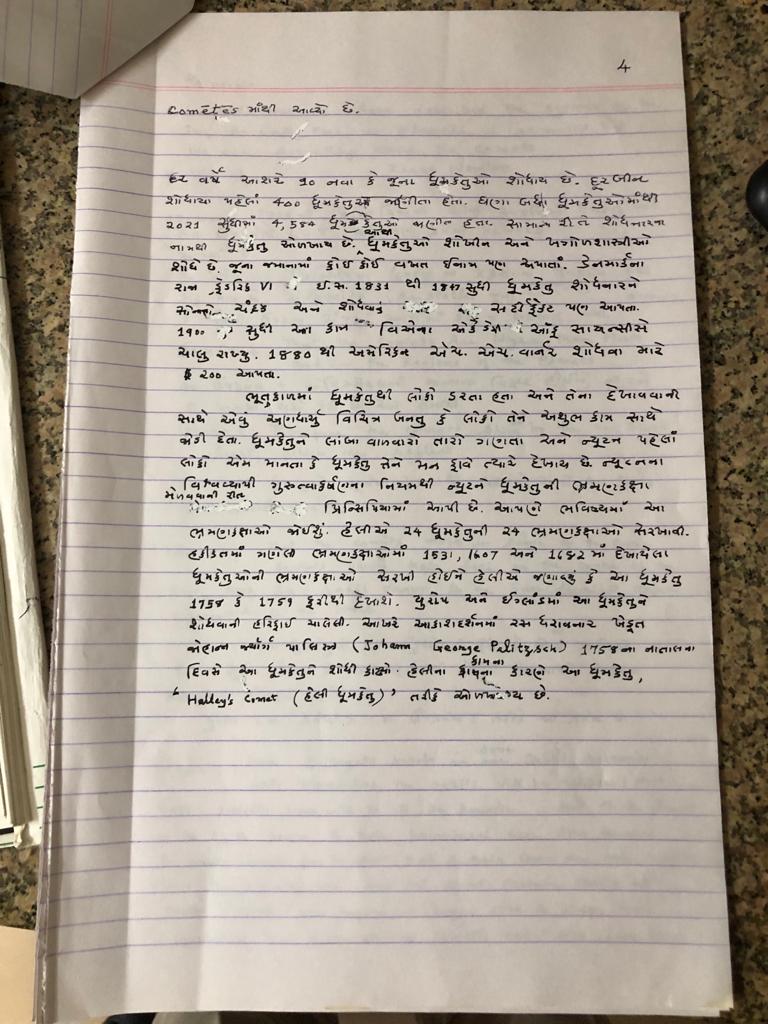 4
Cometes માંથી આવ્યો છે.
દર વર્ષે આશરે ૧૦ નવા કે જૂના ધૂમકેતુઓ શોધાય છે. દૂરબીન
શોધાયા પહેલાં 400 ધૂમકેતુઓ જાણીતા હતા. ઘણા બધા ધૂમકેતુઓમાંથી
2021 સુધીમાં 4,584 ધૂમકેતુઓ જાણીતા હતા. સામાન્ય રીતે શોધનારના
નામથી ધૂમકેતુ ઓળખાય છે. આથી ધૂમકેતુઓ શોખીન અને ખગોળશાસ્ત્રીઓ
શોધે છે. જૂના જમાનામાં કોઈ કોઈ વખત ઈનામ પણ અપાતાં. ડેનમાર્કના
રાજા ફ્રેડરિક VI ઈ.સ. 1831 થી 1847 સુધી ધૂમકેતુ શોધનારને
સોનાનો ચંદ્રક અને શોધવાનું સર્ટીફીકેટ પણ આપતા.
1900 સુધી આ કામ વિએના એકેડેમી ઓફ સાયન્સીસે
ચાલુ રાખ્યુ. 1880 થી અમેરિકન એચ. એચ. વાર્નર શોધવા માટે
$ 200 આપતા.
ભૂતકાળમાં ધૂમકેતુથી લોકો ડરતા હતા અને તેના દેખાવવાની
સાથે એવું અણધાર્યુ વિચિત્ર બનતુ કે લોકો તેને અશુભ કામ સાથે
જોડી દેતા. ધૂમકેતુને લાંબા વાળવાળો તારો ગણતા અને ન્યૂટન પહેલાં
લોકો એમ માનતા કે ધૂમકેતુ તેને મન ફાવે ત્યારે દેખાય છે. ન્યૂટનના
વિશ્વવ્યાપી ગુરુત્વાકર્ષણના નિયમથી ન્યૂટને ધૂમકેતુની ભ્રમણકક્ષા
મેળવવાની રીત પ્રિન્સિપિયામાં આપી છે. આપણે ભવિષ્યમાં આ
ભ્રમણકક્ષાઓ જોઈશું. હેલીએ 24 ધૂમકેતુની 24 ભ્રમણકક્ષાઓ સરખાવી.
હકીકતમાં ગણેલી ભ્રમણકક્ષાઓમાં 1531, 1607 અને 1682 માં દેખાયેલા
ધૂમકેતુઓની ભ્રમણકક્ષાઓ સરખી હોઈને હેલીએ જણાવ્યું કે આ ધૂમકેતુ
1758 કે 1759 ફરીથી દેખાશે. યુરોપ અને ઈંગ્લાંડમાં આ ધૂમકેતુને
શોધવાની હરિફાઈ ચાલેલી. આખરે આકાશદર્શનમાં રસ ધરાવનાર ખેડૂત
જોહાન્ન જ્યોર્ગ (Johann George Palitzsch) 1758 ના નાતાલના
દિવસે આ ધૂમકેતુને શોધી કાઢ્યો. હેલીના કામના કારણે આ ધૂમકેતુ,
"Halley's Comet (હેલી ધૂમકેતુ)" તરીકે ઓળખાય છે.